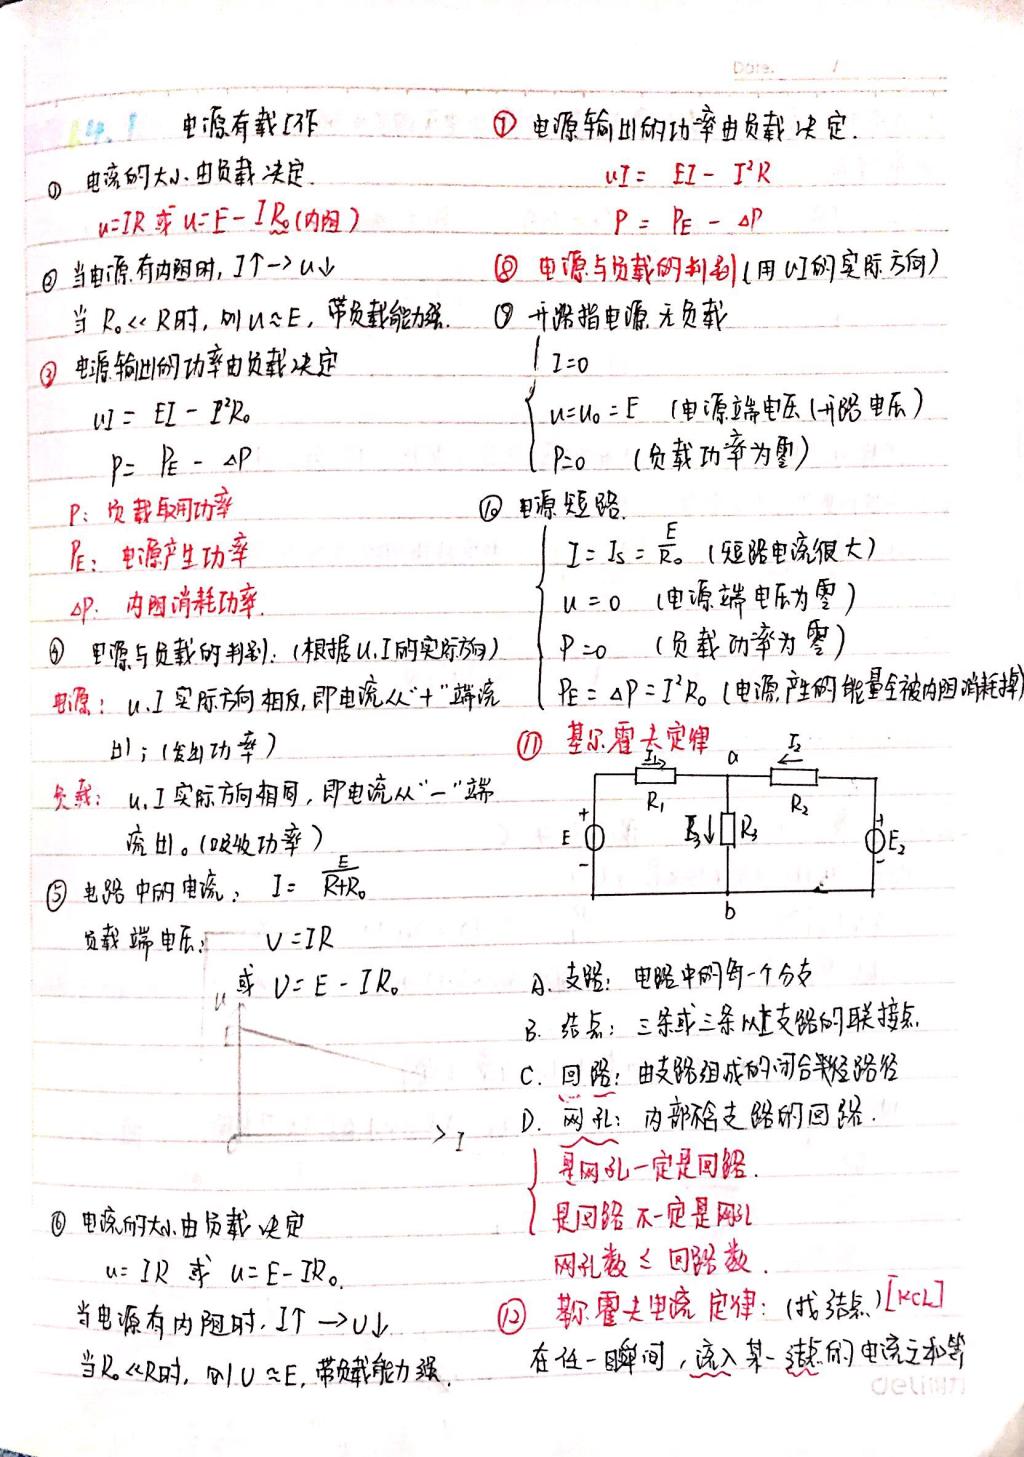 Date. /
1.4.1 电源有载工作
① 电流的大小由负载决定.
u=IR 或 u=E-IR₀(内阻)
② 当电源有内阻时, I↑→u↓
当 R₀<<R时, 则u≈E, 带负载能力强.
③ 电源输出的功率由负载决定
uI = EI - I²R₀
P = PE - △P
P: 负载取用功率
PE: 电源产生功率
△P. 内阻消耗功率.
④ 电源与负载的判别: (根据u.I的实际方向)
电源: u.I实际方向相反, 即电流从"+"端流
出; (发出功率)
负载: u.I实际方向相同, 即电流从"-"端
流出。(吸收功率)
⑤ 电路中的电流: I = E/R+R₀
负载端电压: U=IR
或 U=E-IR₀
U
E
O
I
⑥ 电流的大小由负载决定
u=IR 或 u=E-IR₀.
当电源有内阻时. I↑→U↓
当R₀<<R时, 则U≈E, 带负载能力强.
⑦ 电源输出的功率由负载决定.
uI = EI - I²R
P = PE - △P
⑧ 电源与负载的判别(用UI的实际方向)
⑨ 开路指电源无负载
I=0
u=u₀=E (电源端电压(开路电压)
P=0 (负载功率为零)
⑩ 电源短路.
I=Is=E/R₀ (短路电流很大)
u=0 (电源端电压为零)
P=0 (负载功率为零)
PE=△P=I²R₀ (电源产生的能量全被内阻消耗掉)
⑪ 基尔霍夫定律
I₁ a I₂
R₁ R₂
+ E - I₃ R₃ + E₂ -
b
A. 支路: 电路中的每一个分支
B. 结点: 三条或三条以上支路的联接点.
C. 回路: 由支路组成的闭合路径
D. 网孔: 内部不含支路的回路.
是网孔一定是回路.
是回路不一定是网孔
网孔数 ≤ 回路数.
⑫ 基尔霍夫电流定律: (找结点)[KCL]
在任一瞬间, 流入某一结点的电流之和等
deli得力